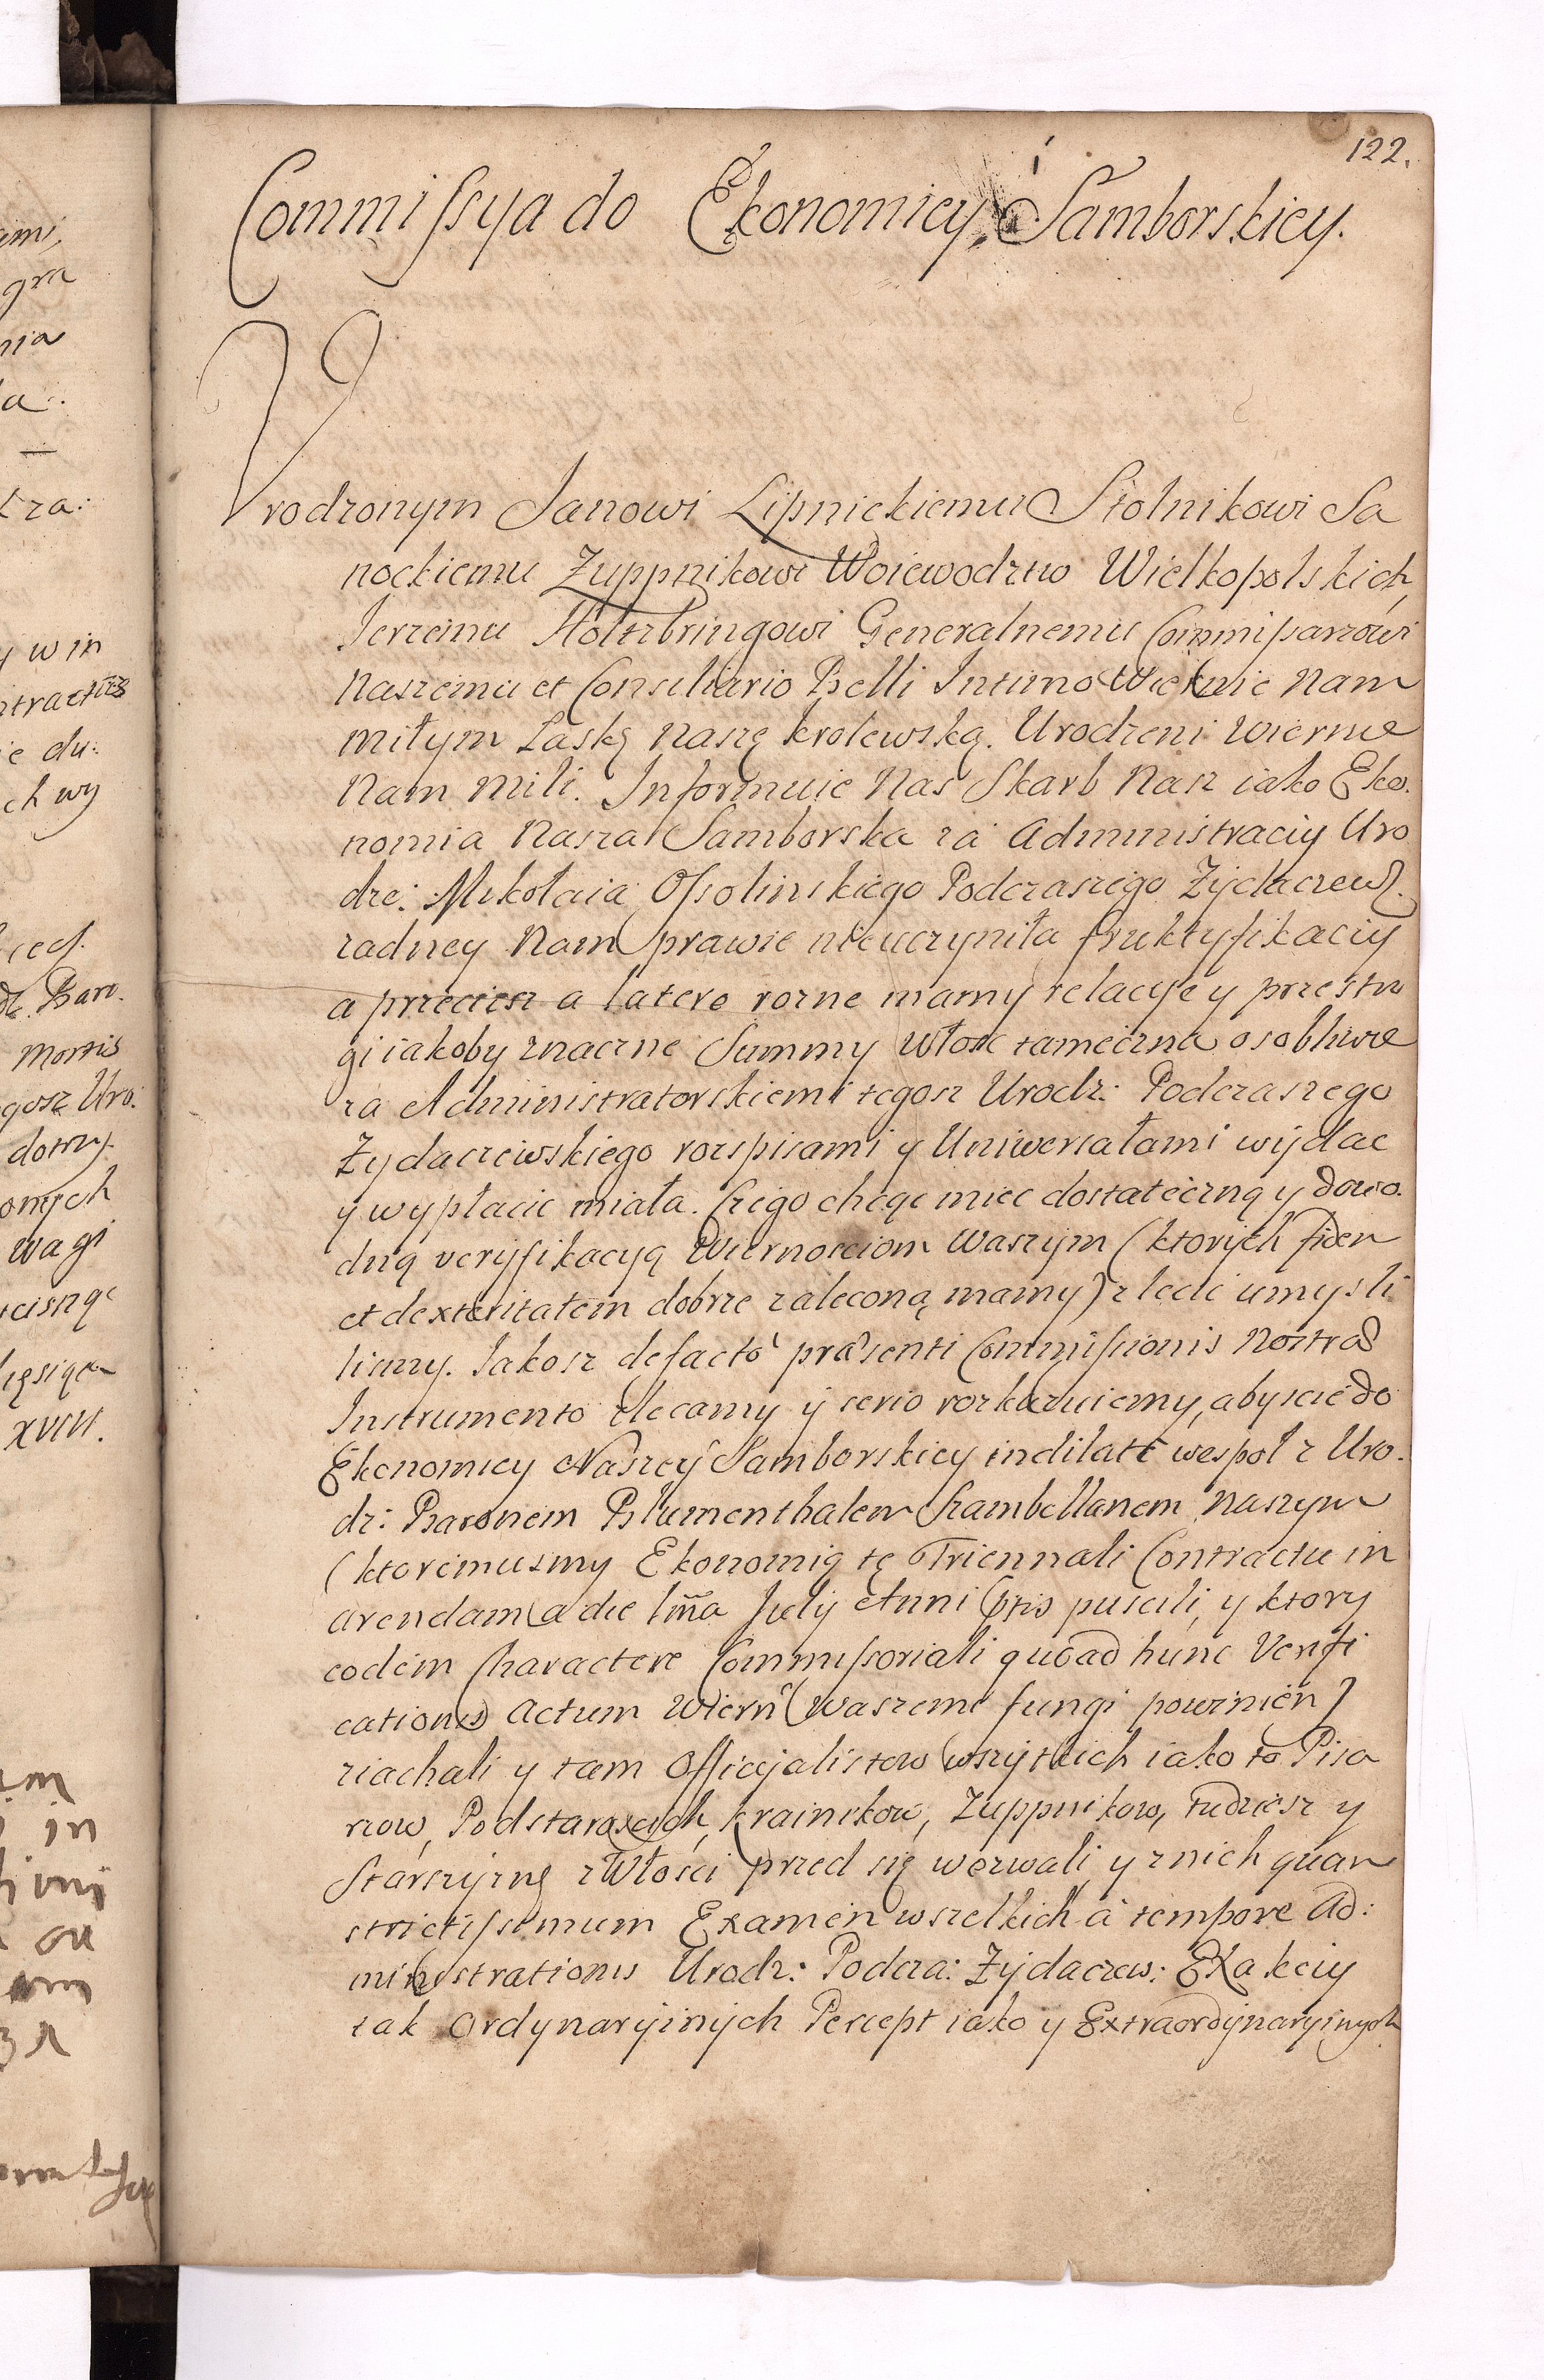 122.
Commissya do Ekonomiey Samborskiey.
Vrodzonym Janowi Lipnickiemu Stolnikowi Sa
nockiemu Zuppnikowi Woiewodztw Wielkopolskich,
Jerzemu Holtzbringowi Generalnemu Commissarzowi
Naszemu et Consiliario Belli Intimo Wiernie Nam
miłym Łaskę Naszę krolewską. Urodzeni Wiernie
Nam Mili. Informuie Nas Skarb Nasz iako Eko.
nomia Nasza Samborska za Administraciy Uro
dze: Mikołaia Ossolinskiego Podczaszego Zydaczews.
zadney Nam prawie nieuczyniła fruktyfikaciy
a przeciesz a latere rozne mamy relacye y przestro
gi iakoby znaczne Summy Włosc tameczna osobliwie
za Administratorskiemi tegosz Urodz: Podczaszego
Zydaczewskiego rozspisami y Uniwersałami wydac
y wypłacic miała. Czego chcąc miec dostateczną y dowo.
dną veryfikacyą Wiernosciom Waszym (ktorych fidem
et dexteritatem dobrze zaleconą mamy) zlecic umysli
lismy. Jakosz defacto præsenti Commissionis Nostræ
Instrumento zlecamy y serio rozkazuiemy, abyscie do
Ekonomiey Naszey Samborskiey indilate wespol z Uro.
dz: Baronem Blumenthalem Szambellanem Naszym
(ktoremusmy Ekonomią tę Triennali Contractu in
arendam a die 1ma July Anni Pntis puscili, y ktory
eodem Charactere Commissoriali quoad hunc Verifi
cationis Actum Wiern Waszemi fungi powinien)
ziachali y tam Officyalistow wszytkich iako to Pisa
rzow, Podstaroscich, krainikow, Zuppnikow, tudziesz y
Starszyznę z Włosci przed się wezwali, y znich quam
strictissimum Examen wszelkich à tempore Ad:
ministrationis Urodz: Podcza: Zydaczew: Exakciy
tak Ordynaryinych Percept iako y Extraordynaryinych